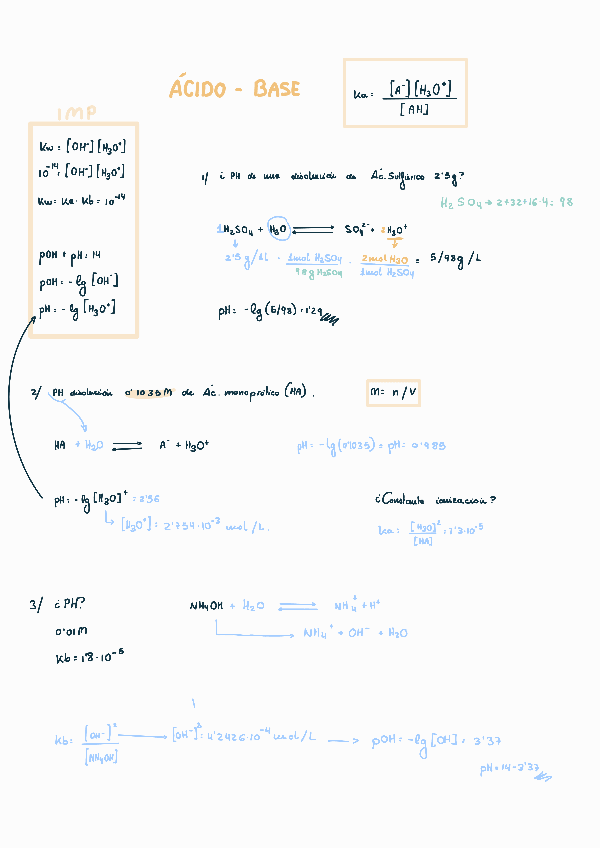 ÁCIDO - BASE
Ka = [A⁻][H₃O⁺] / [AH]
IMP
Kw = [OH⁻][H₃O⁺]
10⁻¹⁴ = [OH⁻][H₃O⁺]
Kw = Ka · Kb = 10⁻¹⁴
pOH + pH = 14
pOH = - lg [OH⁻]
pH = - lg [H₃O⁺]
1/ ¿ PH de una disolución de Ác. Sulfúrico 2'5g?
H₂SO₄ → 2+32+16·4 = 98
1H₂SO₄ + H₂O ⇌ SO₄²⁻ + 2H₃O⁺
2'5 g/1L · 1mol H₂SO₄ / 98g H₂SO₄ · 2mol H₃O / 1mol H₂SO₄ = 5/98g/L
pH = -lg (5/98) = 1'29
2/ PH disolución 0'1035M de Ác. monoprótico (HA).
M = n/V
HA + H₂O ⇌ A⁻ + H₃O⁺
pH = -lg (0'1035) = pH = 0'985
pH = - lg [H₃O]⁺ = 2'56
→ [H₃O⁺] = 2'754·10⁻³ mol/L.
¿Constante ionización?
Ka = [H₃O]² / [HA] = 7'3·10⁻⁵
3/ ¿ PH?
NH₄OH + H₂O ⇌ NH₄⁺ + H⁺
0'01M
→ NH₄⁺ + OH⁻ + H₂O
Kb = 1'8·10⁻⁵
Kb = [OH⁻]² / [NH₄OH] → [OH⁻]² = 4'2426·10⁻⁴ mol/L → pOH = -lg [OH] = 3'37
pH = 14 - 3'37